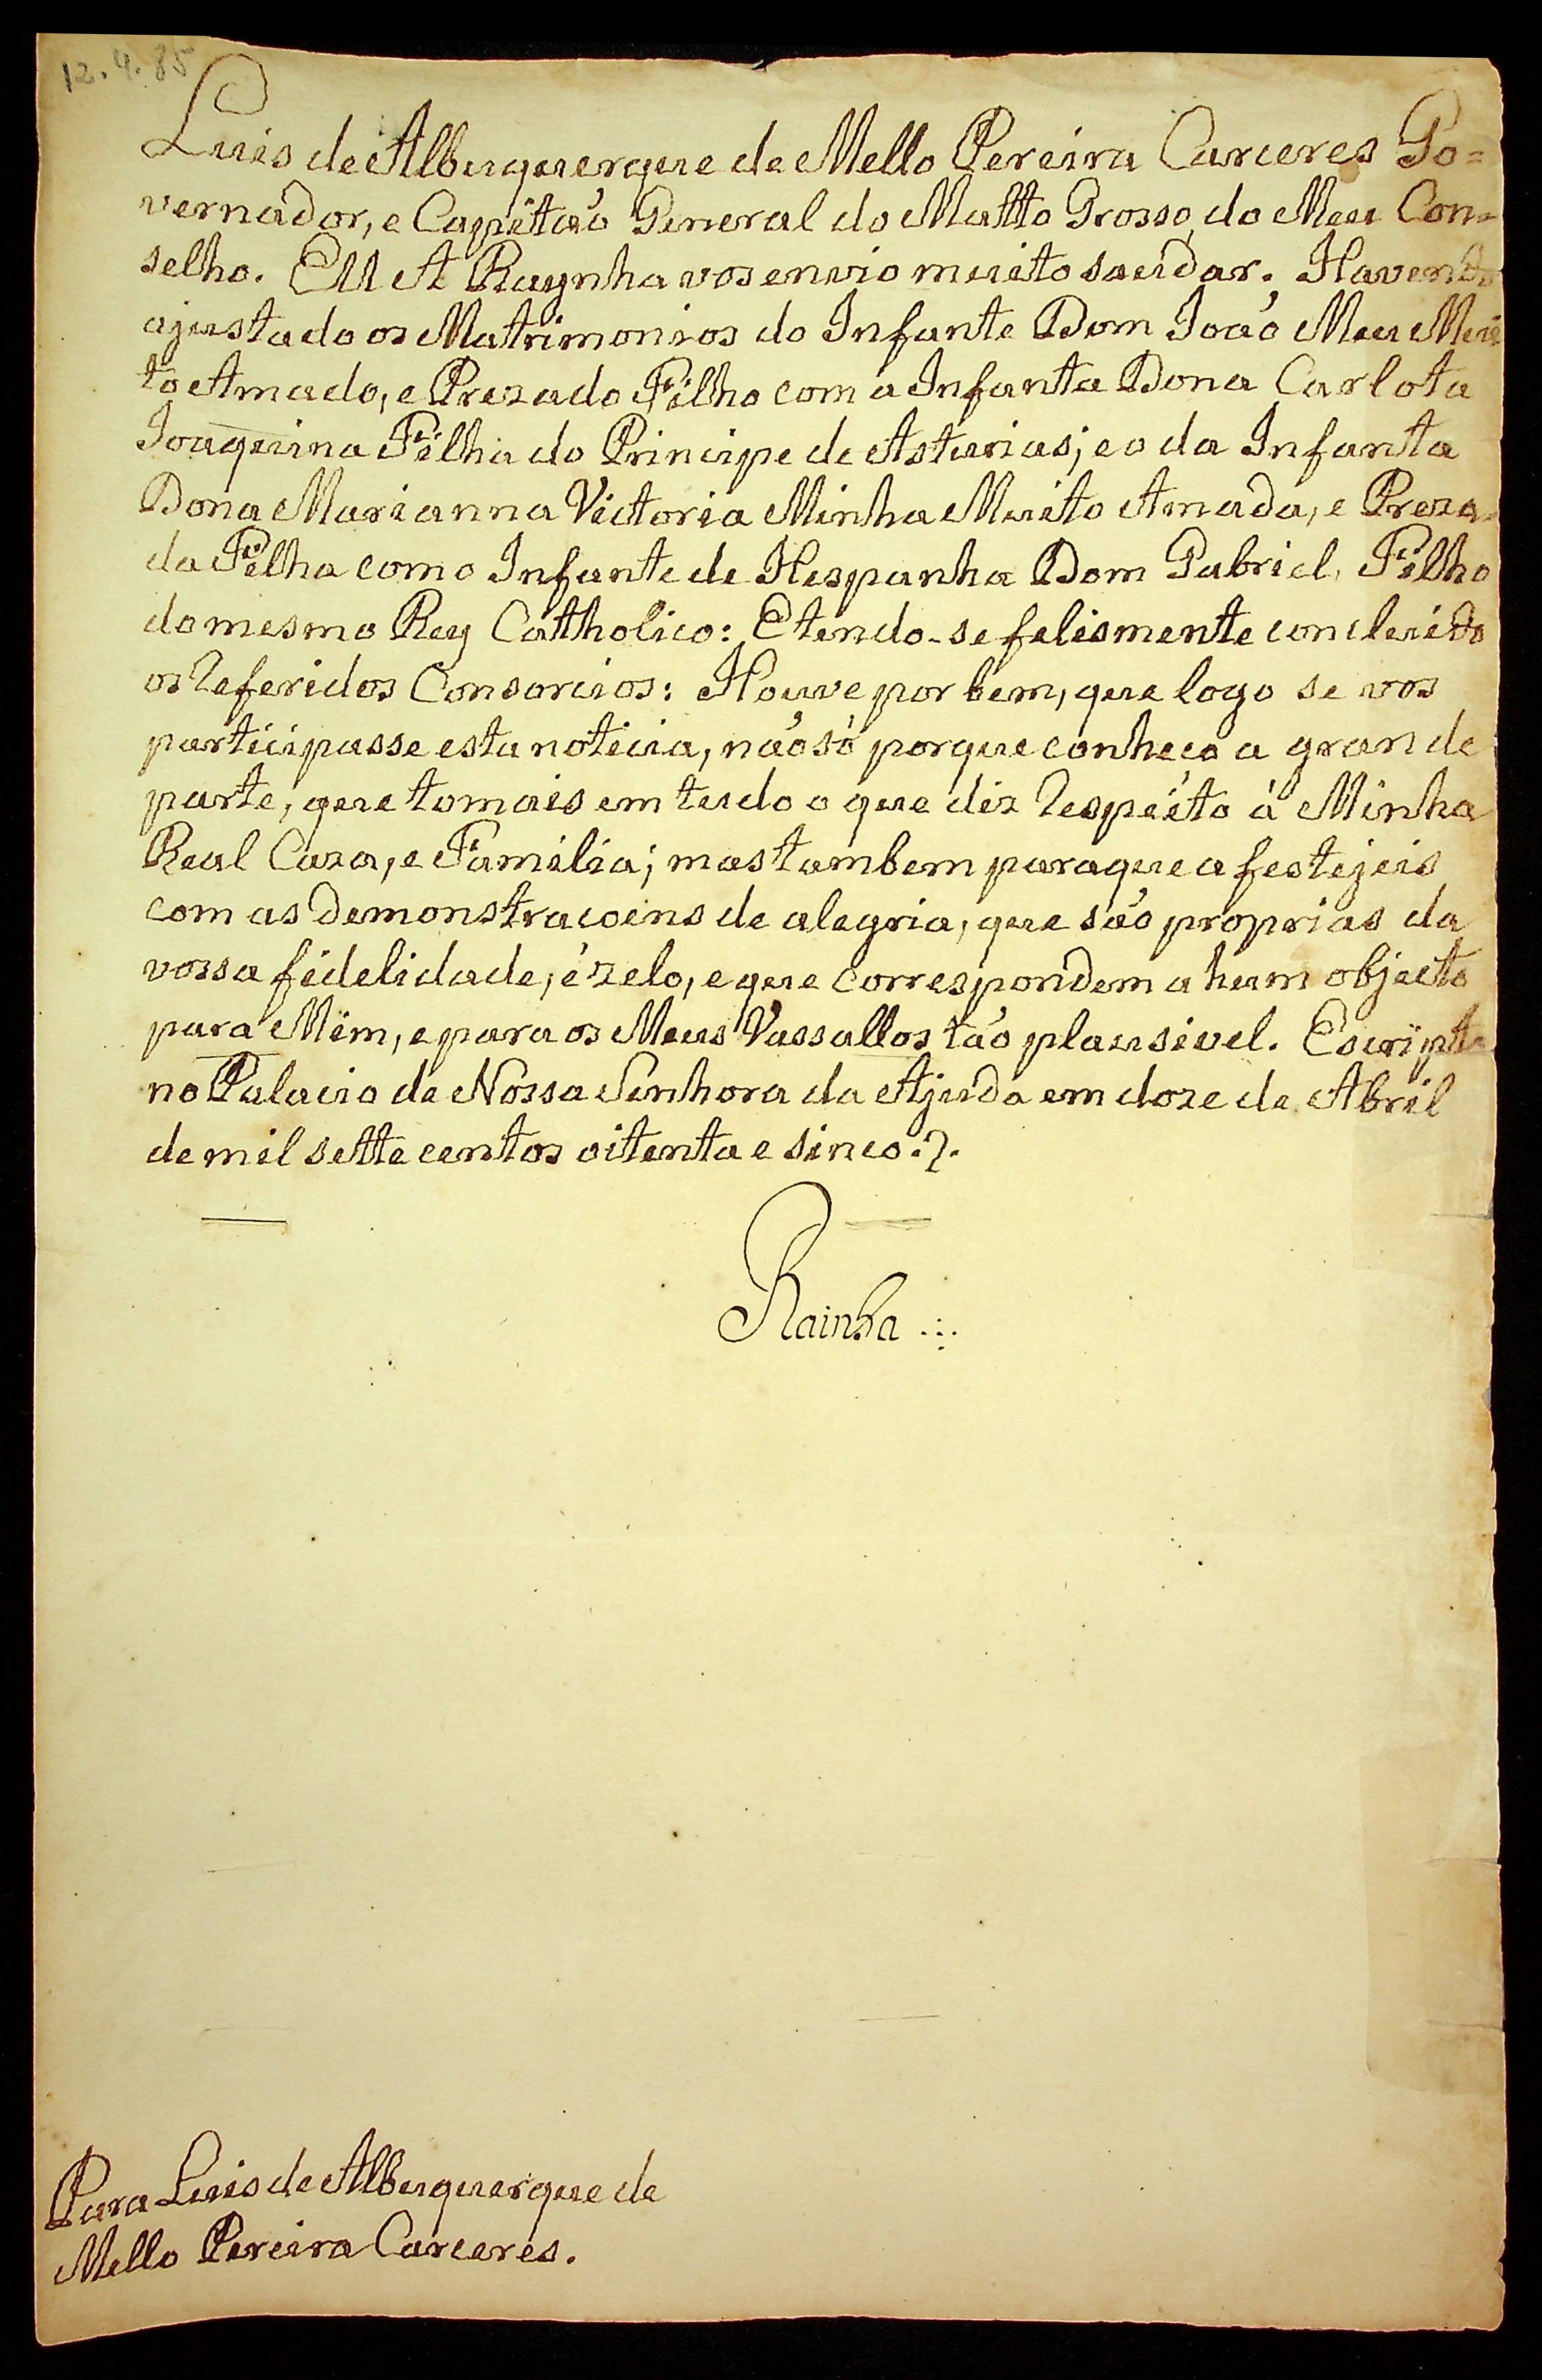 12.4.85
Luis de Albuquerque de Mello Pereira Carceres Go=
vernador, e Capitaõ General do Mattto Grosso, do Meu Con=
selho. EU A Raynha vos envio muito saudar. Havendo
ajustado os Matrimonios do Infante Dom Joaõ Meu Mui
to Amado, e Prezado Filho com a Infanta Dona Carlota
Joaquina Filha do Principe de Asturias; e o da Infanta
Dona Marianna Victoria Minha Muito Amada, e Preza-
da Filha com o Infante de Hespanha Dom Gabriel, Filho
do mesmo Rey Cattholico: E tendo-se felismente concluido
os Referidos Consorcios: Houve por bem, que logo se vos
participasse esta noticia, naõ só porque conheco a grande
parte, que tomais em tudo o que diz Respeito á Minha
Real Caza, e Familia; mas tambem para que a festejeis
com as Demonstracoens de alegria, que saõ proprias da
vossa fidelidade, é zelo, e que correspondem a hum objecto
para Mim, e para os Meus Vassallos taõ plausivel. Escripta
no Palacio de Nossa Senhora da Ajuda em doze de Abril
de mil sette centos oitenta e sinco.
Rainha
Para Luis de Albuquerque de
Mello Pereira Carceres.